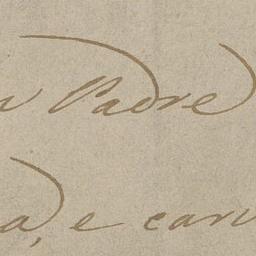 Padre
a, e car